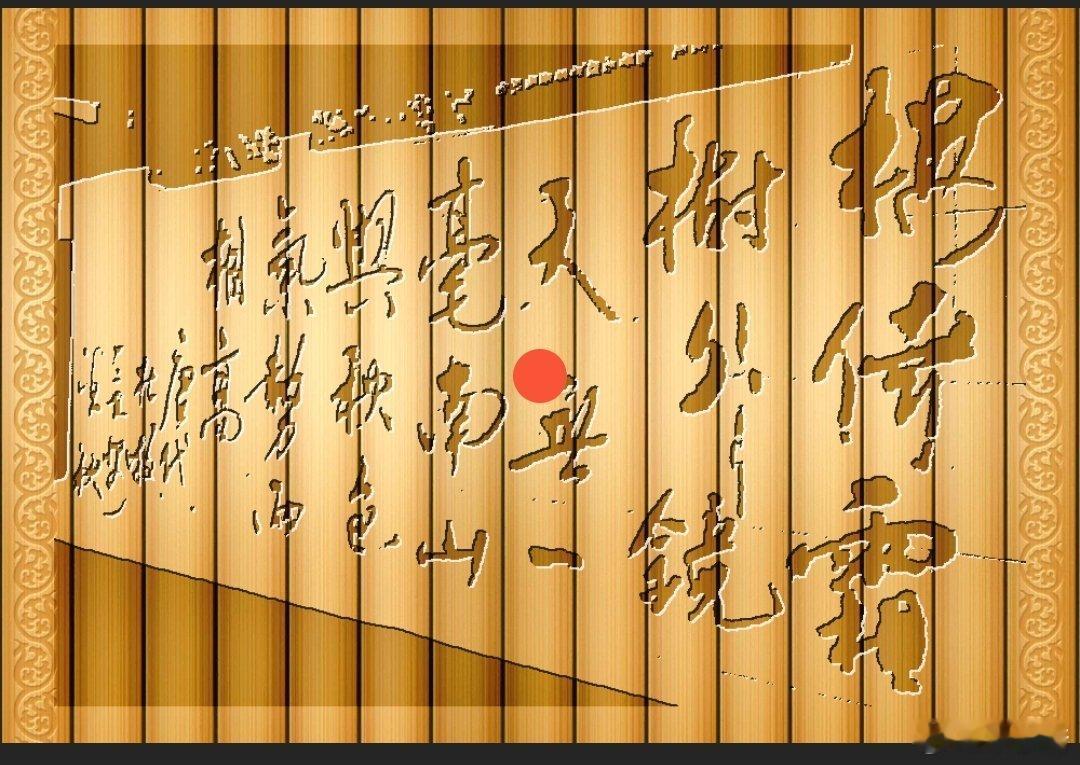 樓倚霜
樹外鏡
天無一
毫南山
與秋色
氣勢兩
相高
唐代
杜牧